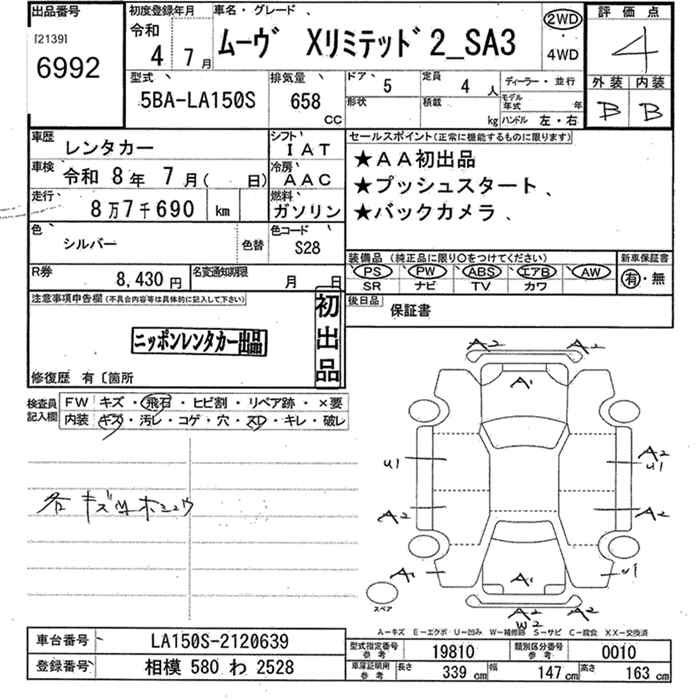 出品番号
[2139]
6992
初度登録年月
令和
4 年 7 月
車名・グレード
ムーヴ Xリミテッド2_SA3
2WD
・
4WD
評価点
4
外装 内装
B B
型式
5BA-LA150S
排気量
658
CC
ドア
5
形状
定員
4 人
積載
kg
ディーラー・並行
モデル年式 年
ハンドル 左・右
車歴
レンタカー
シフト
IAT
車検
令和 8 年 7 月( 日)
冷房
AAC
走行
8万7千690 km
燃料
ガソリン
色
シルバー
色替
色コード
S28
R券
8,430 円
名変通知期限
月 日
セールスポイント(正常に機能するものに限ります)
★AA初出品
★プッシュスタート
★バックカメラ
装備品 (純正品に限り○をつけてください)
PS PW ABS エアB AW
SR ナビ TV カワ
新車保証書
有・無
後日品
保証書
注意事項申告欄(不具合内容等は具体的に記入して下さい)
ニッポンレンタカー出品
初出品
修復歴 有〔箇所
検査員記入欄
FW キズ・飛石・ヒビ割・リペア跡・×要
内装 キズ・汚レ・コゲ・穴・スレ・キレ・破レ
A2 A2
A1
U1 A2
U1
A2 A2
A1 A1 U1
A2 A2
W2
スペア
A-キズ E-エクボ・U-凹み W-補修跡 S-サビ C-腐食 XX-交換済
車台番号
LA150S-2120639
登録番号
相模 580 わ 2528
型式指定番号
参考
19810
類別区分番号
参考
0010
車庫証明用
参考
長さ 339 cm 幅 147 cm 高さ 163 cm